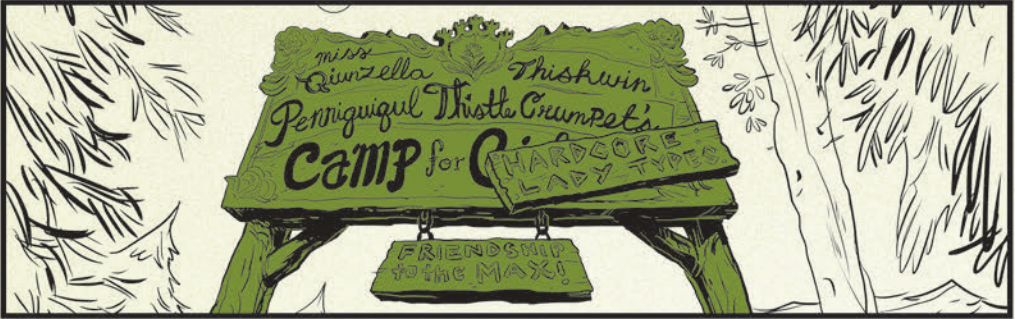 miss
Qiunzella Thiskwin
Penniquiqul Thistle Crumpet's
CAMP for
HARDCORE
LADY TYPES
FRIENDSHIP
to the MAX!